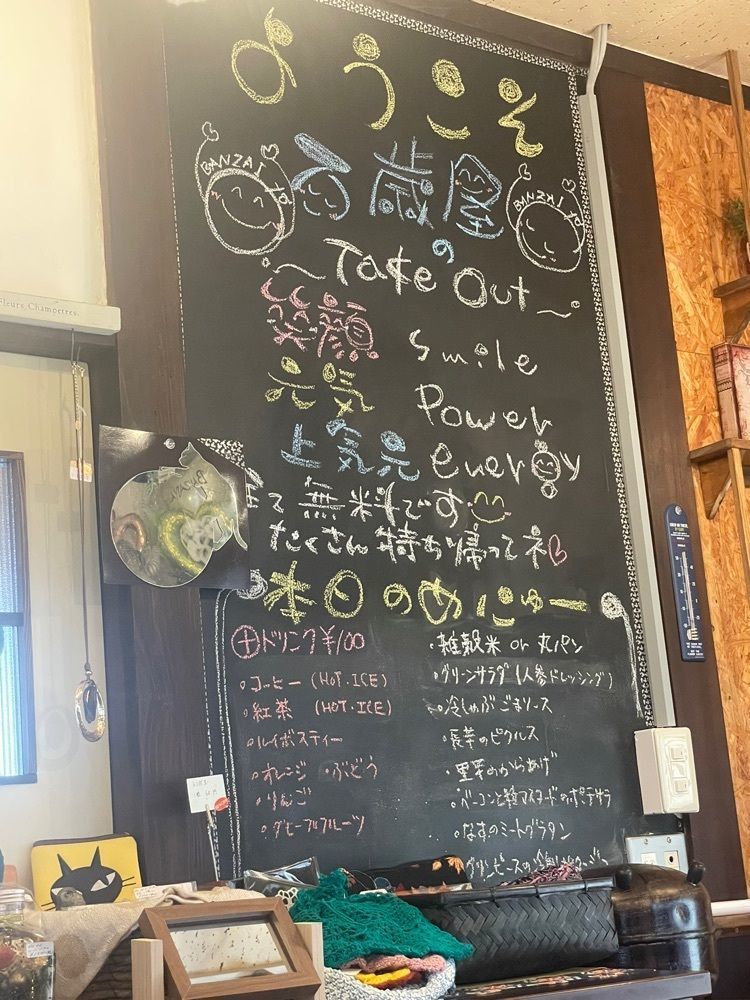 ようこそ
BANZAI ya 百歳屋 BANZAI ya
の
〜Take Out〜
笑顔 Smile
元気 Power
上気元 energy
全て無料です
たくさん持ち帰ってネ
本日のめにゅー
⊕ドリンク ¥100
・コーヒー (HOT・ICE)
・紅茶 (HOT・ICE)
・ルイボスティー
・オレンジ ・ぶどう
・りんご
・グレープフルーツ
・雑穀米 or 丸パン
・グリーンサラダ (人参ドレッシング)
・冷しゃぶごまソース
・長芋のピクルス
・里芋のからあげ
・ベーコンと粒マスタードのポテサラ
・なすのミートグラタン
グリンピースの冷製
Fleurs Champetres.